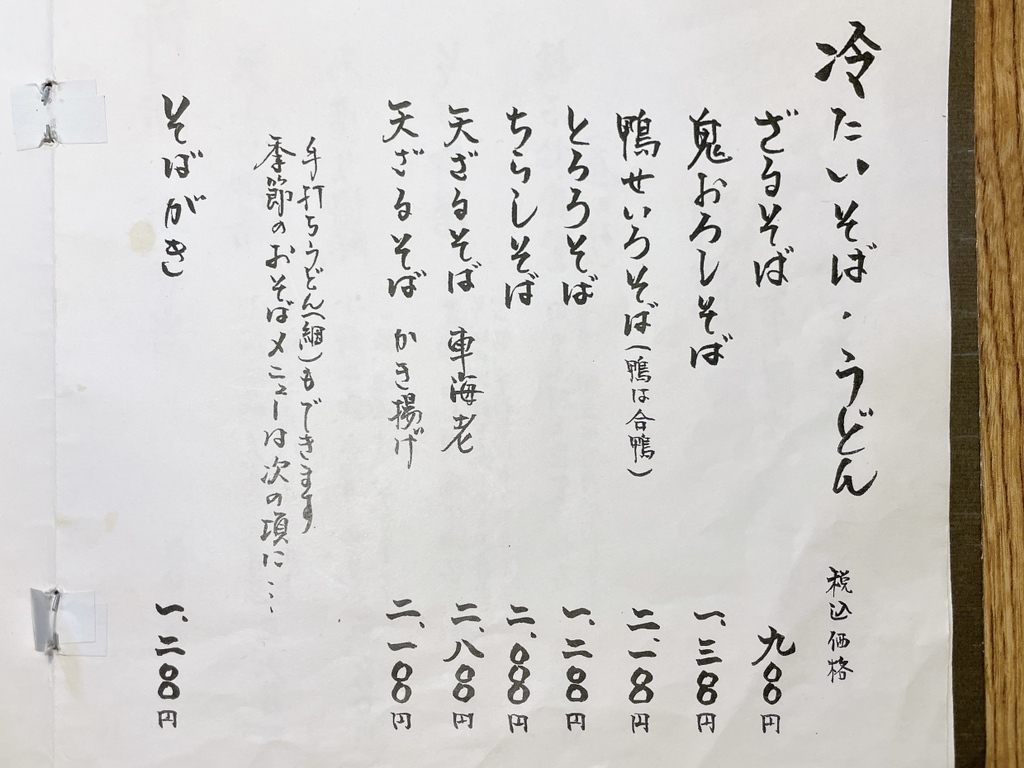 冷たいそば・うどん 税込価格
ざるそば 九〇〇円
鬼おろしそば 一、三〇〇円
鴨せいろそば(鴨は合鴨) 二、一〇〇円
とろろそば 一、二〇〇円
ちらしそば 二、〇〇〇円
天ざるそば 車海老 二、八〇〇円
天ざるそば かき揚げ 二、一〇〇円
手打ちうどん(細)もできます
季節のおそばメニューは次の項に…
そばがき 一、二〇〇円